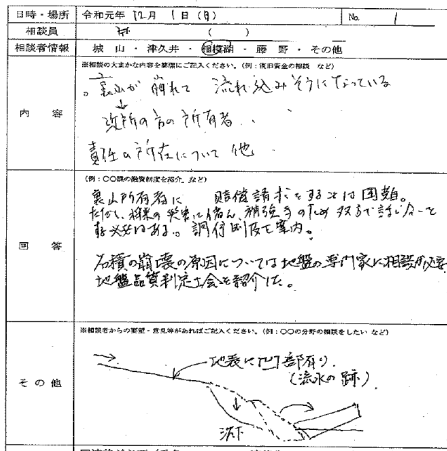 日時・場所 令和元年 12月 1日(日) No. 1
相談員 ( )
相談者情報 城山・津久井・相模湖・藤野・その他
※相談の大まかな内容を簡潔にご記入ください。(例:義援資金の相談 など)
内容
裏山が崩れて 流れ込みそうになっている
近所の方の所有者
責任の所在について 他
(例:○○課の融資制度を紹介 など)
回答
裏山所有者に 賠償請求をすることは困難。
ただし、将来の災害に備え、補強等のため 双方で話し合うこと
も必要はある。調停制度を案内。
石積の崩壊の原因については地盤の専門家に相談が必要
地盤品質判定士会を紹介した。
※相談者からの要望・意見等があればご記入ください。(例:○○の分野の相談をしたい など)
その他
地表に凹部有り
(流水の跡)
沈下